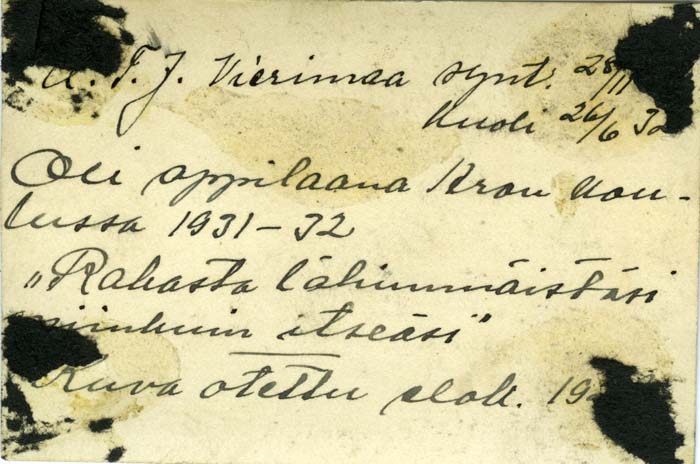 T. J. Vierimaa synt. 28/11
kuoli 26/6 32
Oli oppilaana Kron kou-
lussa 1931-32
„Rakasta lähimmäistäsi
niinkuin itseäsi"
Kuva otettu elok. 19